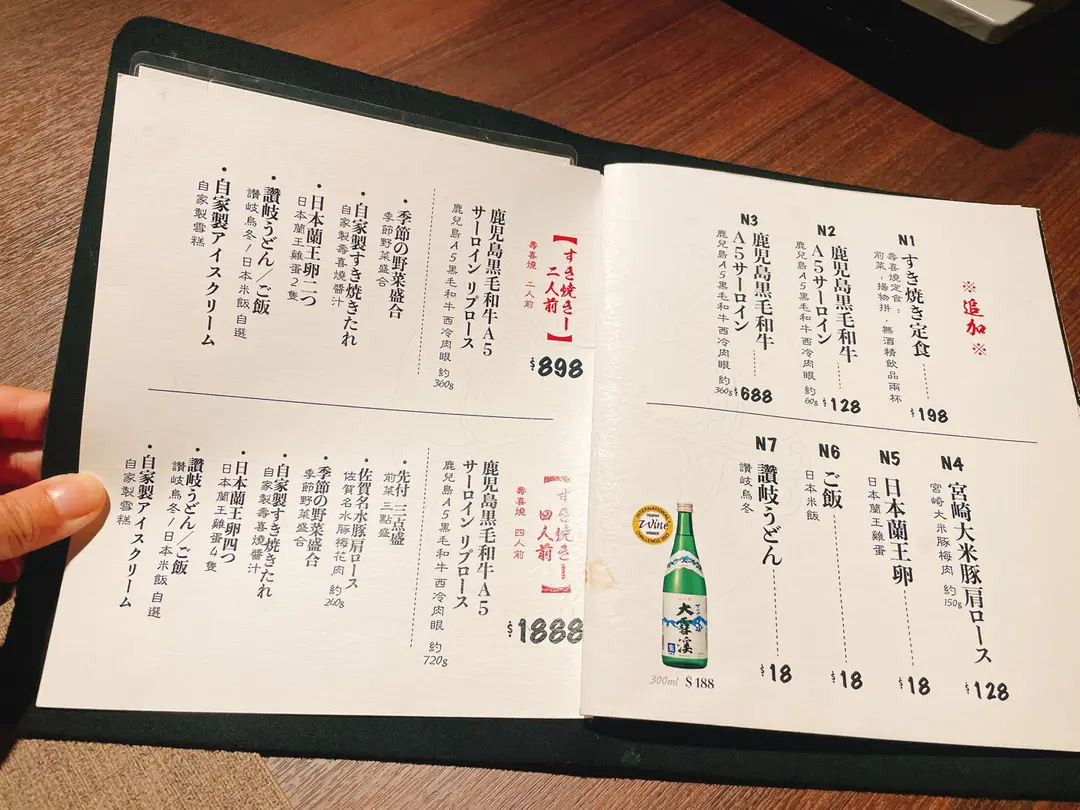 【すき焼きー
二人前】
壽喜燒 二人前
$898
鹿児島黒毛和牛A5
サーロイン リブロース
鹿兒島A5黑毛和牛西冷肉眼 約360g
・季節の野菜盛合
季節野菜盛合
・自家製すき焼きたれ
自家製壽喜燒醬汁
・日本蘭王卵二つ
日本蘭王雞蛋2隻
・讃岐うどん/ご飯
讚岐烏冬/日本米飯 自選
・自家製アイスクリーム
自家製雪糕
【すき焼きー
四人前】
壽喜燒 四人前
$1888
鹿児島黒毛和牛A5
サーロイン リブロース
鹿兒島A5黑毛和牛西冷肉眼 約720g
・先付 三点盛
前菜三點盛
・佐賀名水豚肩ロース
佐賀名水豚梅花肉 約260g
・季節の野菜盛合
季節野菜盛合
・自家製すき焼きたれ
自家製壽喜燒醬汁
・日本蘭王卵四つ
日本蘭王雞蛋4隻
・讃岐うどん/ご飯
讚岐烏冬/日本米飯 自選
・自家製アイスクリーム
自家製雪糕
※追加※
N1
すき焼き定食
$198
壽喜燒定食:
前菜,揚物拼,無酒精飲品兩杯
N2
鹿児島黒毛和牛
A5サーロイン
$128
鹿兒島A5黑毛和牛西冷肉眼 約60g
N3
鹿児島黒毛和牛
A5サーロイン
$688
鹿兒島A5黑毛和牛西冷肉眼 約360g
N4
宮崎大米豚肩ロース
$128
宮崎大米豚梅肉 約150g
N5
日本蘭王卵
$18
日本蘭王雞蛋
N6
ご飯
$18
日本米飯
N7
讃岐うどん
$18
讚岐烏冬
INTERNATIONAL
TROPHY
WINNER
CHALLENGE
大雪渓
300ml $188